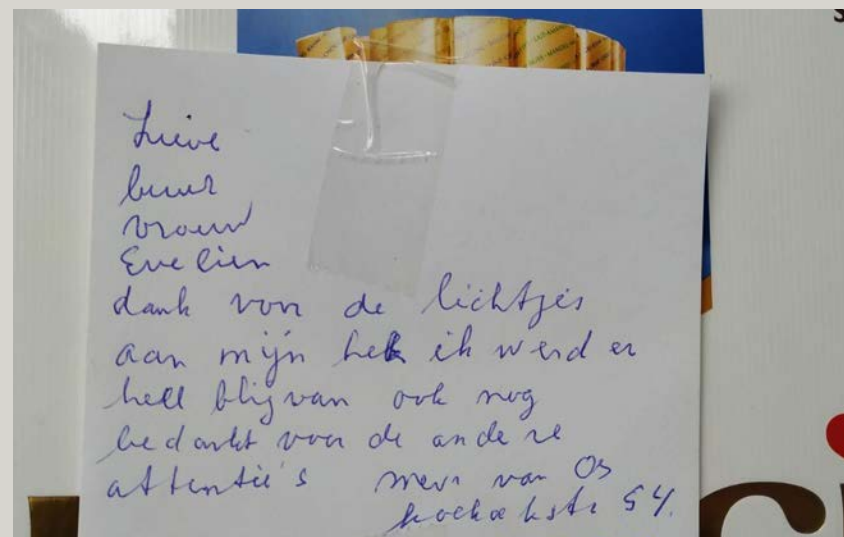 Lieve
buur
vrouw
Evelien
dank voor de lichtjes
aan mijn hek ik werd er
heel blij van ook nog
bedankt voor de andere
attentie's mevr van Os
54.